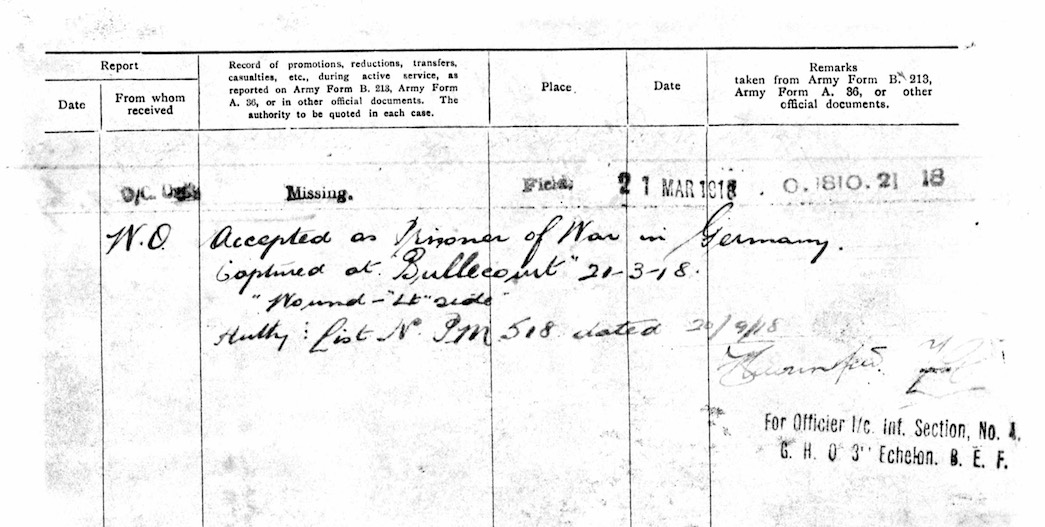 Report
Date
From whom
received
Record of promotions, reductions, transfers,
casualties, etc., during active service, as
reported on Army Form B. 213, Army Form
A. 36, or in other official documents. The
authority to be quoted in each case.
Place
Date
Remarks
taken from Army Form B. 213,
Army Form A. 36, or other
official documents.
O/C. Missing. Field. 21 MAR 1918 . O.1810.21 18
W.O. Accepted as Prisoner of War in Germany.
Captured at "Bullecourt" 21-3-18.
"Wound - "Lt" side"
Authy: List No. P.M 518 dated 20/9/18
For Officier I/c. Inf. Section, No. 4.
G. H. Q 3" Echelon. B. E. F.